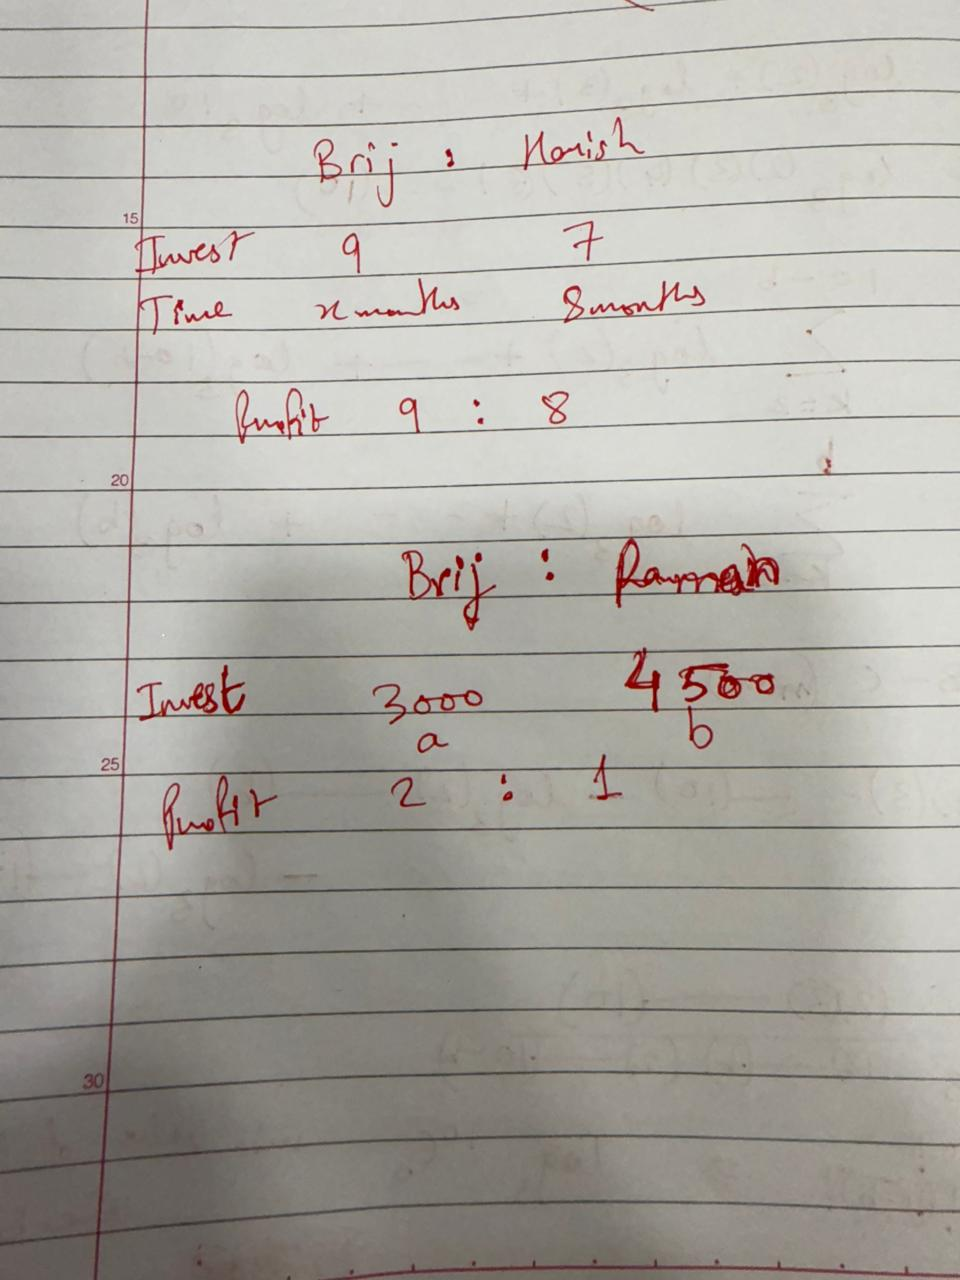 Brij : Harish
15
Invest 9 7
Time x months 8 months
Profit 9 : 8
20
Brij : Raman
Invest 3000 4500
a b
25
Profit 2 : 1
30